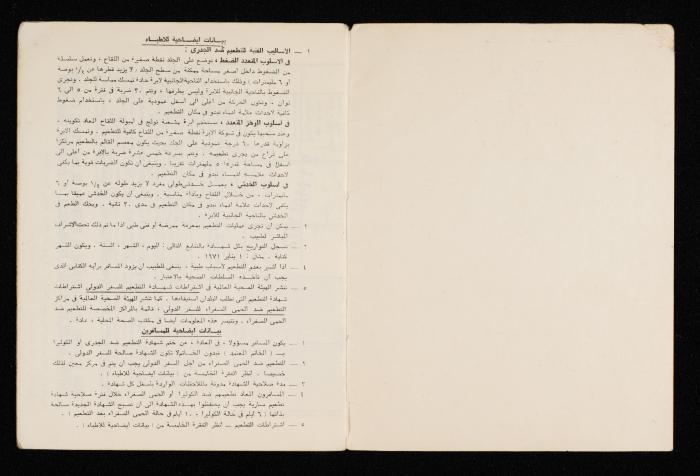 بيانات ايضاحية للاطباء
١ — الاساليب الفنية للتطعيم ضد الجدرى :
فى الاسلوب المتعدد الضغط ، توضع على الجلد نقطة صغيرة من اللقاح ، وتعمل سلسلة
من الضغوط داخل أصغر مساحة ممكنة من سطح الجلد ( لا يزيد قطرها عن ١/٤ بوصة
أو ٦ مليمترات ) وذلك باستخدام الناحية الجانبية لابرة حادة تمسك مماسة للجلد . وتجرى
الضغوط بالناحية الجانبية للابرة وليس بطرفها ، وتتم ٣٠ ضربة فى فترة من ٥ الى ٦
ثوان . وتكون الحركة من أعلى الى أسفل عمودية على الجلد ، باستخدام ضغوط
كافية لاحداث علامة ادماء تبدو فى مكان التطعيم .
فى أسلوب الوخز المتعدد ، تستخدم ابرة مشعبة تولج فى أمبولة اللقاح المعاد تكوينه .
وعند سحبها يكون فى شوكة الابرة نقطة صغيرة من اللقاح كافية للتطعيم . وتمسك الابرة
بزاوية قدرها ٩٠ درجة عمودية على الجلد بحيث يكون معصم القائم بالتطعيم مرتكزا
على ذراع من يجرى تطعيمه . وتتم بسرعة خمس عشرة ضربة بالابرة من أعلى الى
أسفل فى مساحة قدرها ٥ مليمترات تقريبا . وينبغى أن تكون الضربات قوية بما يكفى
لاحداث علامة ادماء تبدو فى مكان التطعيم .
فى اسلوب الخدش ، يعمل خدش طولى مفرد لا يزيد طوله عن ١/٤ بوصة أو ٦
مليمترات ، من خلال اللقاح وبأداة مناسبة . وينبغى أن يكون الخدش عميقا بما
يكفى لاحداث علامة ادماء تبدو فى مكان التطعيم فى مدى ٣٠ ثانية . ويحك الطعم فى
الخدش بالناحية الجانبية للابرة .
٢ — يمكن أن تجرى عمليات التطعيم بمعرفة ممرضة أو فنى طبى اذا ما تم ذلك تحت الاشراف
المباشر لطبيب .
٣ — تسجل التواريخ بكل شهادة بالتتابع التالى : اليوم ، الشهر ، السنة . ويكون الشهر
كتابة . مثال : ١ يناير ١٩٧١
٤ — اذا أشير بعدم التطعيم لاسباب طبية ، ينبغى للطبيب أن يزود المسافر برأيه الكتابى الذى
يجب أن تأخذه السلطات الصحية بالاعتبار .
٥ — تنشر الهيئة الصحية العالمية فى اشتراطات شهادة التطعيم للسفر الدولى اشتراطات
شهادة التطعيم التى تطلب البلدان استيفاءها . كما تنشر الهيئة الصحية العالمية فى مراكز
التطعيم ضد الحمى الصفراء للسفر الدولى ، قائمة بالمراكز المخصصة للتطعيم ضد
الحمى الصفراء . وتتيسر هذه المعلومات أيضا فى مكاتب الصحة المحلية ، عادة .
بيانات ايضاحية للمسافرين
١ — يكون المسافر مسؤولا ، فى العادة ، عن ختم شهادة التطعيم ضد الجدرى أو الكوليرا
بـ ( الخاتم المعتمد ) فبدون الخاتم لا تكون الشهادة صالحة للسفر الدولى .
٢ — التطعيم ضد الحمى الصفراء من أجل السفر الدولى يجب أن يتم فى مركز معين لذلك
خصيصا . انظر الفقرة الخامسة من ( بيانات ايضاحية للاطباء ) .
٣ — مدة صلاحية الشهادة مدونة بالملاحظات الواردة بأسفل كل شهادة .
٤ — المسافرون المعاد تطعيمهم ضد الكوليرا أو الحمى الصفراء خلال فترة صلاحية شهادة
تطعيم سارية يجب أن يحتفظوا بهذه الشهادة الى أن تصبح الشهادة الجديدة صالحة
بذاتها ( ٦ أيام فى حالة الكوليرا ، ١٠ أيام فى حالة الحمى الصفراء بعد التطعيم ) .
٥ — اشتراطات التطعيم — انظر الفقرة الخامسة من ( بيانات ايضاحية للاطباء ) .